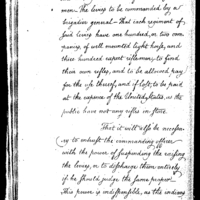 men. The levy to be commanded by a
brigadier general – That each regiment of
said levies have one hundred, or two com-
panies, of well mounted light horse, and
three hundred expert riflemen, to find
their own rifles, and to be allowed pay
for the use thereof, and if lost, to be paid
at the expence of the United States, as the
public have not any rifles in store.
That it will also be necessa-
ry to intrust the commanding officer
with the power of suspending the raising
the levies, or to discharge them entirely
if he should judge the same proper.
This power is indispensible, as the ordinary